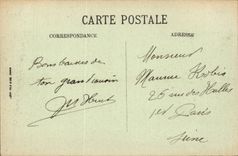 CARTE POSTALE
CORRESPONDANCE
ADRESSE
Bons baisers de
ton grand cousin
Monsieur
Maurice
25 rue des Halles
1er Paris
Seine